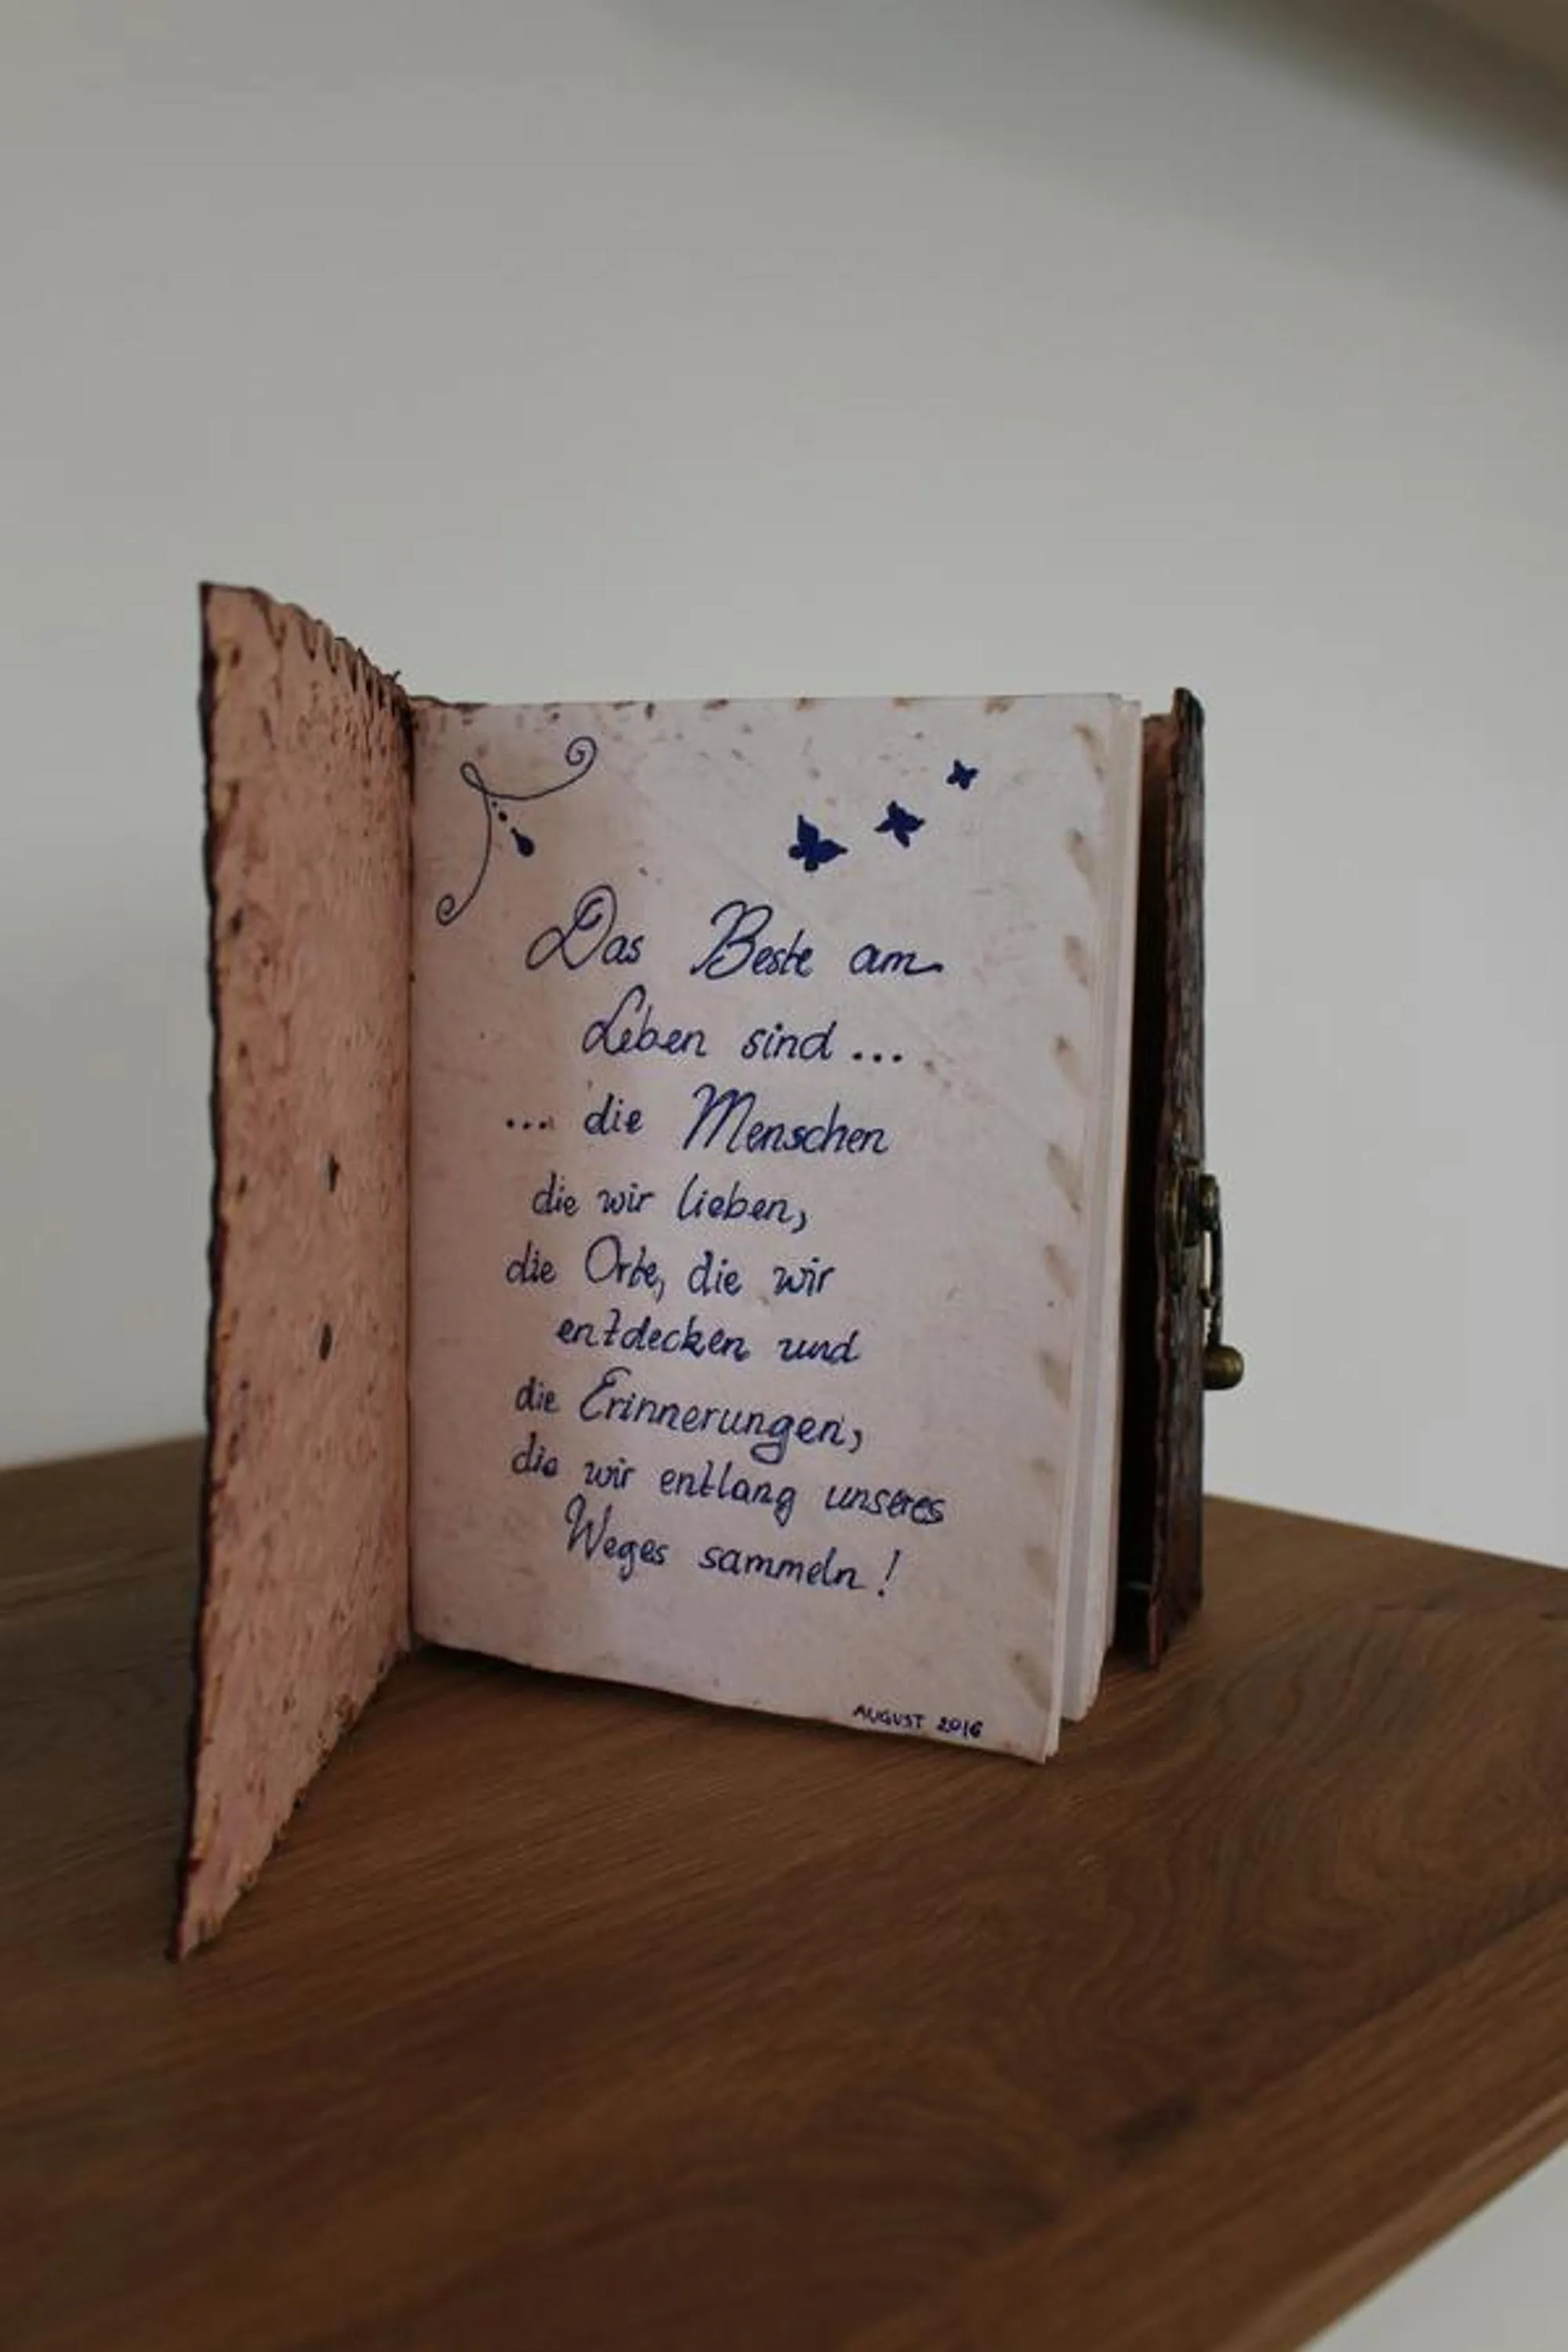 Das Beste am
Leben sind ...
... die Menschen
die wir lieben,
die Orte, die wir
entdecken und
die Erinnerungen,
die wir entlang unseres
Weges sammeln!
AUGUST 2016